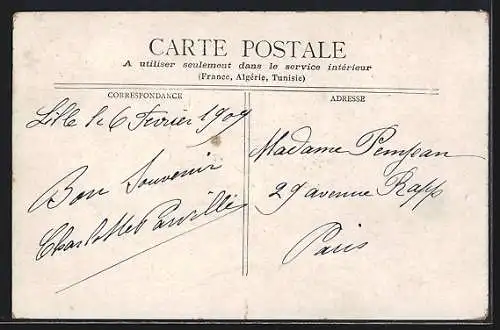 CARTE POSTALE
A utiliser seulement dans le service intérieur
(France, Algérie, Tunisie)
CORRESPONDANCE
Lille le 6 Fevrier 1909
Bon Souvenir
Charlotte
ADRESSE
Madame Pemjean
29 avenue Rapp
Paris